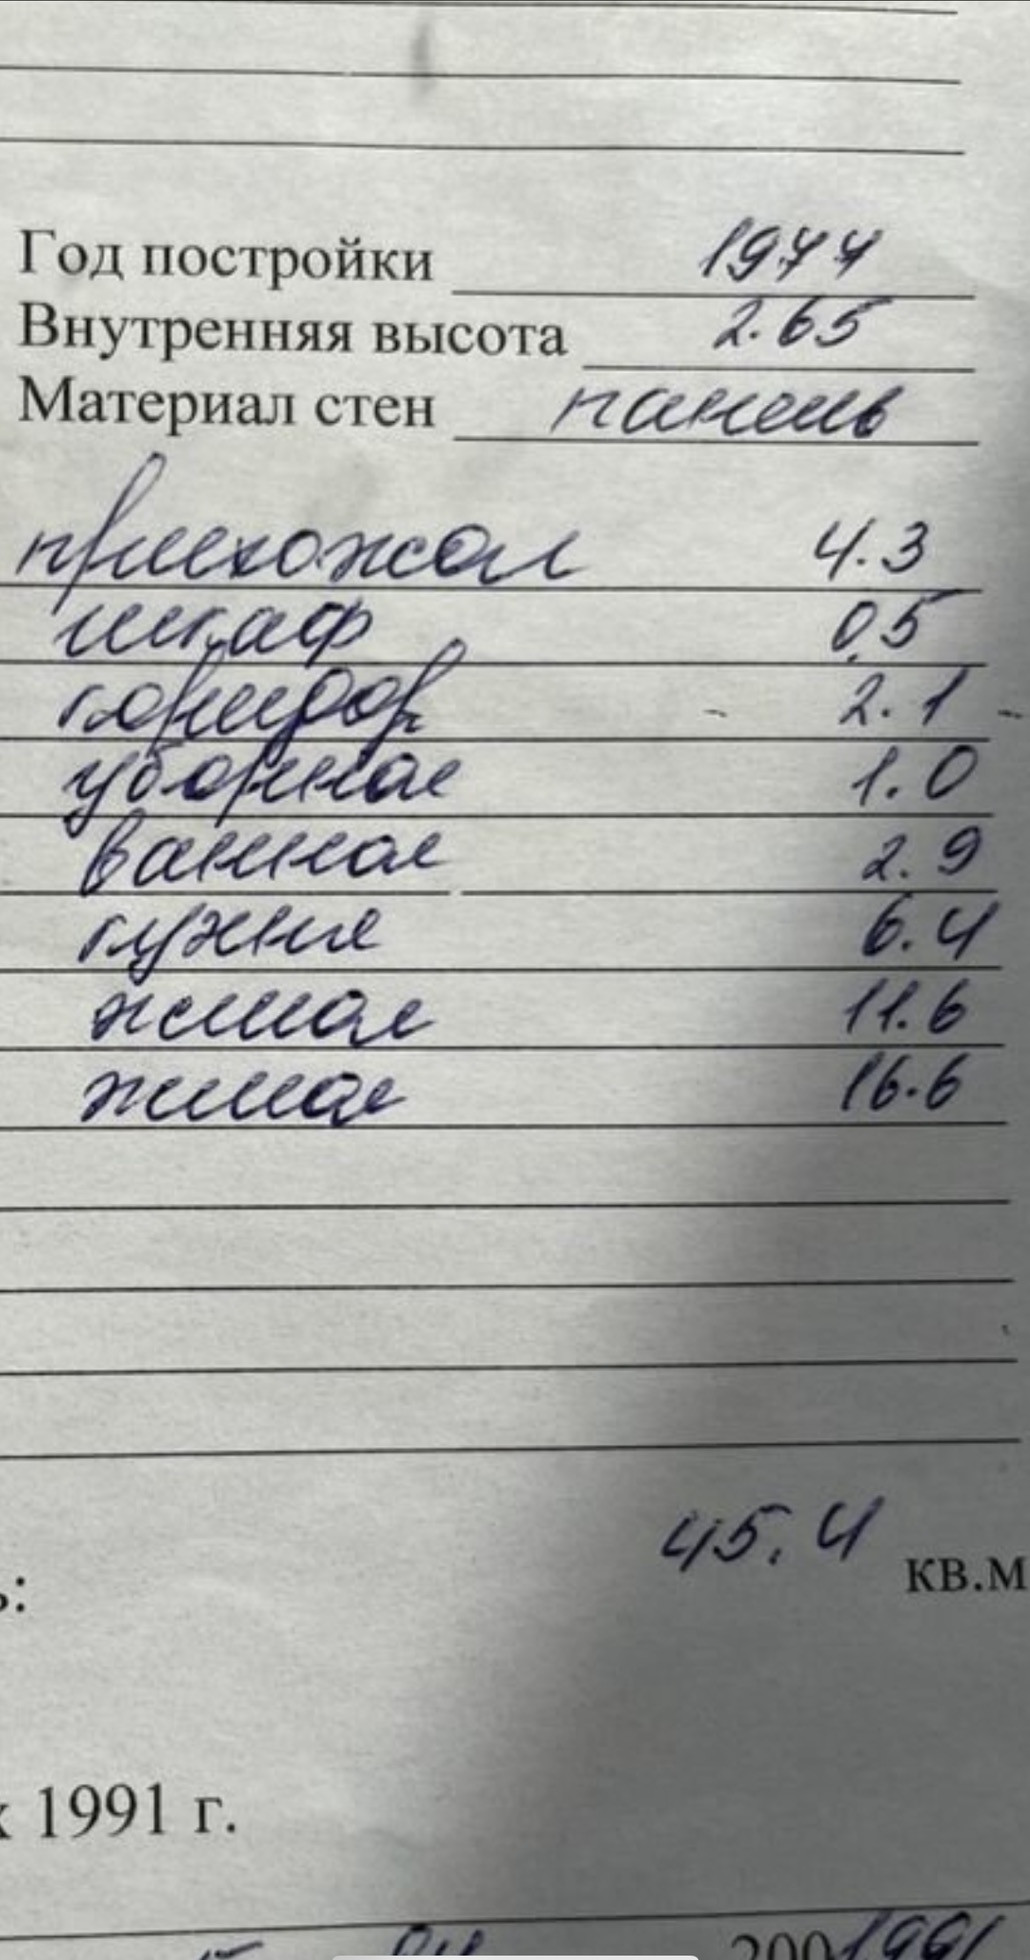 Год постройки 1974
Внутренняя высота 2.65
Материал стен панель
прихожая 4.3
шкаф 0,5
коридор 2.1
уборная 1.0
ванная 2.9
кухня 6.4
жилая 11.6
жилая 16.6
45.4 кв.м
ь:
х 1991 г.
200 1991